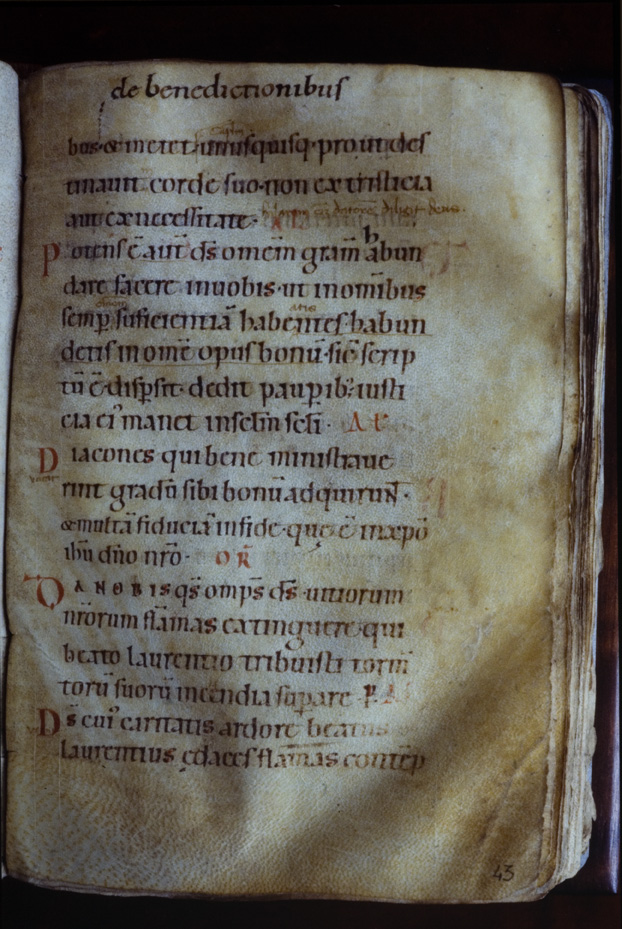 de benedictionibus
bus·& metet unusquisq·prout des
tinauit corde suo·non ex tristicia
aut ex necessitate· hilarem eni datorem diligit deus.
Potens ē aut d̄s omēm gram̄ habun
dare facere inuobis·ut inomībus
semp̱ suficientiā habentes·habun
detis inomē opus bonū·sic̄ scrip
tū ē·disp̱sit·dedit paup̱ib;iusti
cia ei' manet insec̄lm sec̄li·
Diacones qui bene ministraue
rint gradū sibi bonū adquirun̄·
& multā fiduciā infide·quę ē inxp̄o
ih̄u dn̄o nr̄o· OR̄
DA NOBIS qs̄ omp̄s d̄s·uitiorum
nr̄orum flāmas extinguere·qui
beato laurentio tribuisti torm̄
torū suorū incendia sup̱are
Ds̄ cui' caritatis ardore beatus
laurentius ędaces flāmas contēp
43